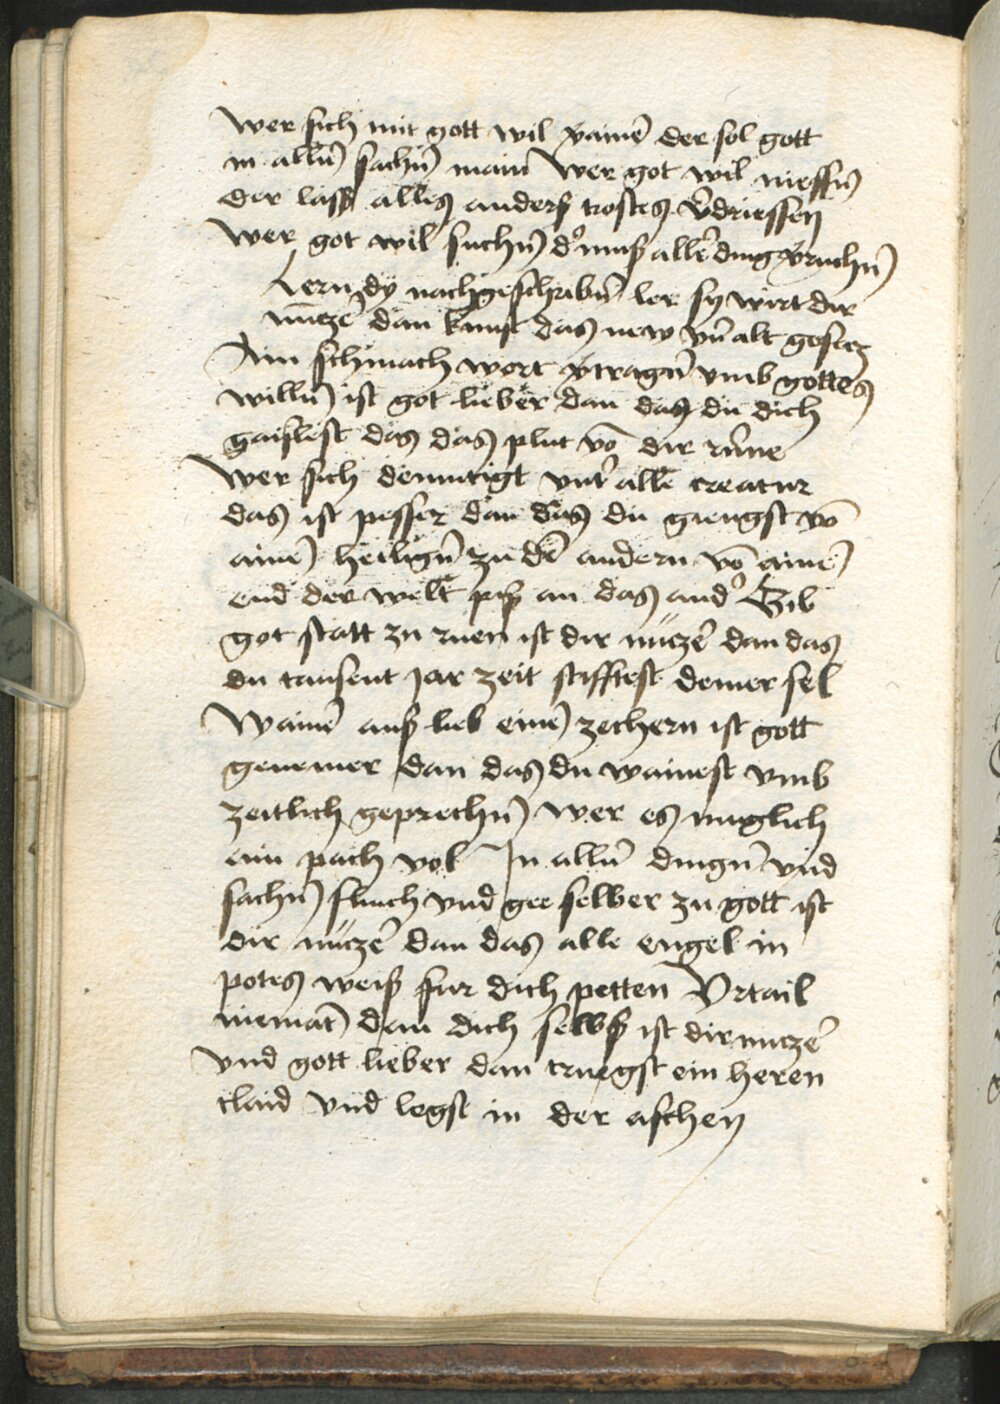 Wer sich mit gott wil v̄ainē der sol gott
in allñ sachñ main Wer got wil niessñ
der lass alles anders trostes v̄driessen
Wer got wil suchñ d' mus allē ding v̄ruchñ
Lern dy nachgeschribñ ler sy wirt dir
nuczē dan kunst das new vñ alt gesecz
Ain schmach wort v̄tragñ vmb gottes
willñ ist got lieber dan das du dich
gaislest das das plut vō dir rūne
Wer sich demutigt vnt' alle creatur
das ist pesser dan das du giengst vō
ainē heiligñ zu dē andern vō ainē
end der welt pis an das and' Gib
got statt zu ruen ist dir nuczē dan das
du tausent jar zeit stifftest deiner sel
Wainē aus lieb einē zechern ist gott
genemer dan das du wainest vmb
zeitlich geprechñ wer es muglich
ein pach vol In allñ dingñ vnd
sachñ fleuch vnd gee selber zu gott ist
dir nuczē dan das alle engel in
potes weis fur dich petten Vrtail
niemāt dan dich selbs ist dir nuczē
vnd gott lieber dan truegst ein heren
claid vnd legst in der aschen